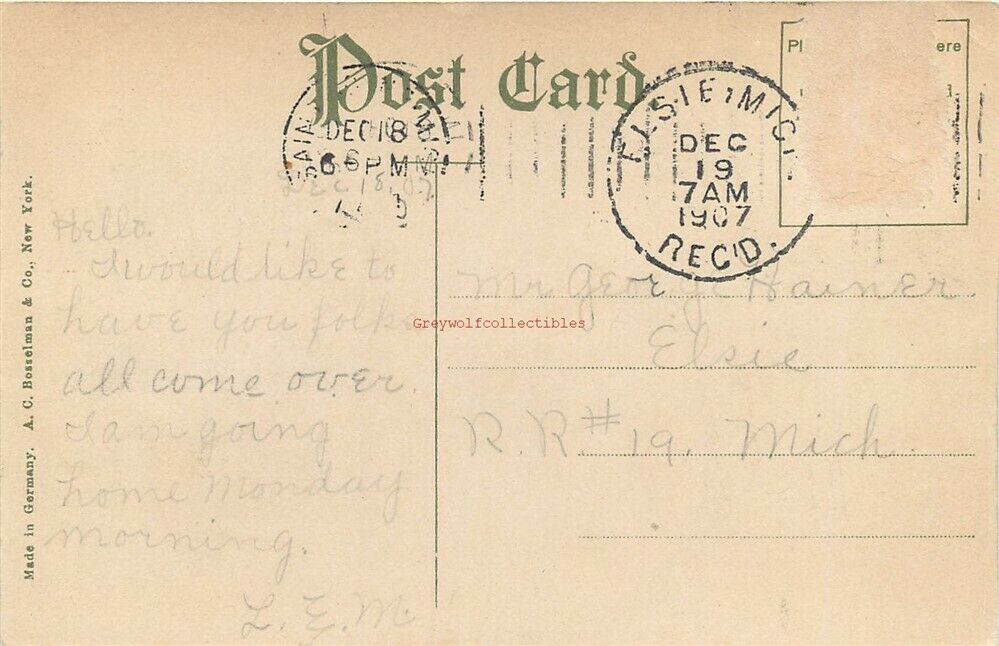 Post Card
Pl ere
DEC 18
6 PM
ELSIE, MICH.
DEC
19
7 AM
1907
REC'D.
Dec 18, 07
Hello.
I would like to
have you folks
all come over.
I am going
home Monday
morning.
L. E. M.
Mr George Hainer
Elsie
R. R. # 19. Mich.
Greywolfcollectibles
Made in Germany. A. C. Bosselman & Co., New York.